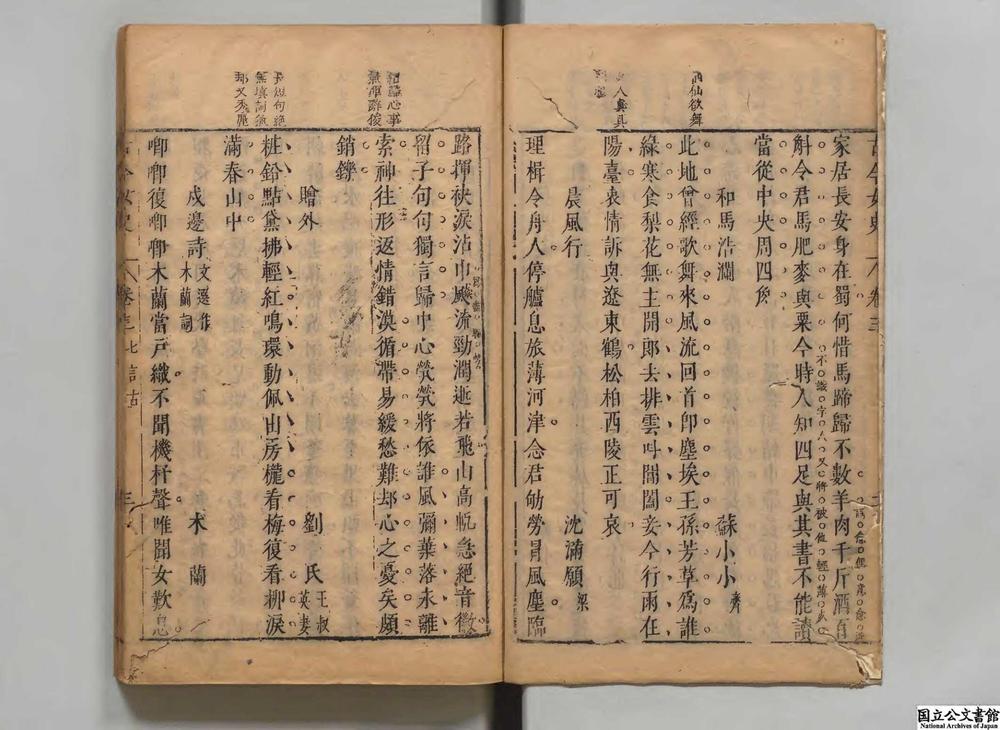 酒仙欲舞
古今女史 卷三
家居長安身在蜀何惜馬蹄歸不數羊肉千斤酒百
斛令君馬肥麥與粟今時人知四足與其書不能讀
不識字人又將被他輕薄
當從中央周四角
和馬浩瀾
蘇小小 齊
此地曾經歌舞來風流回首卽塵埃王孫芳草為誰
綠寒食梨花無主開郎去排雲叫閶闔妾今行雨在
陽臺衷情訴與遼東鶴松柏西陵正可哀
晨風行
沈滿願 梁
理楫令舟人停艫息旅薄河津念君劬勞冒風塵臨
相思心事
路揮袂淚沾巾飈流勁潤逝若飛山高帆急絕音徽
留子句句獨言歸中心煢煢將依誰風彌葉落永離
索神往形返情錯漠循帶易緩愁難却心之憂矣頗
銷鑠
長短句絕
無塡詞氣
却又秀麗
贈外
劉氏 王叔英妻
粧鉛點黛拂輕紅鳴環動佩出房櫳看梅復看柳淚
滿春山中
戍邊詩 文選作木蘭詞
木蘭
喞喞復喞喞木蘭當戶織不聞機杼聲唯聞女歎息
卷三 七言古
国立公文書館
National Archives of Japan